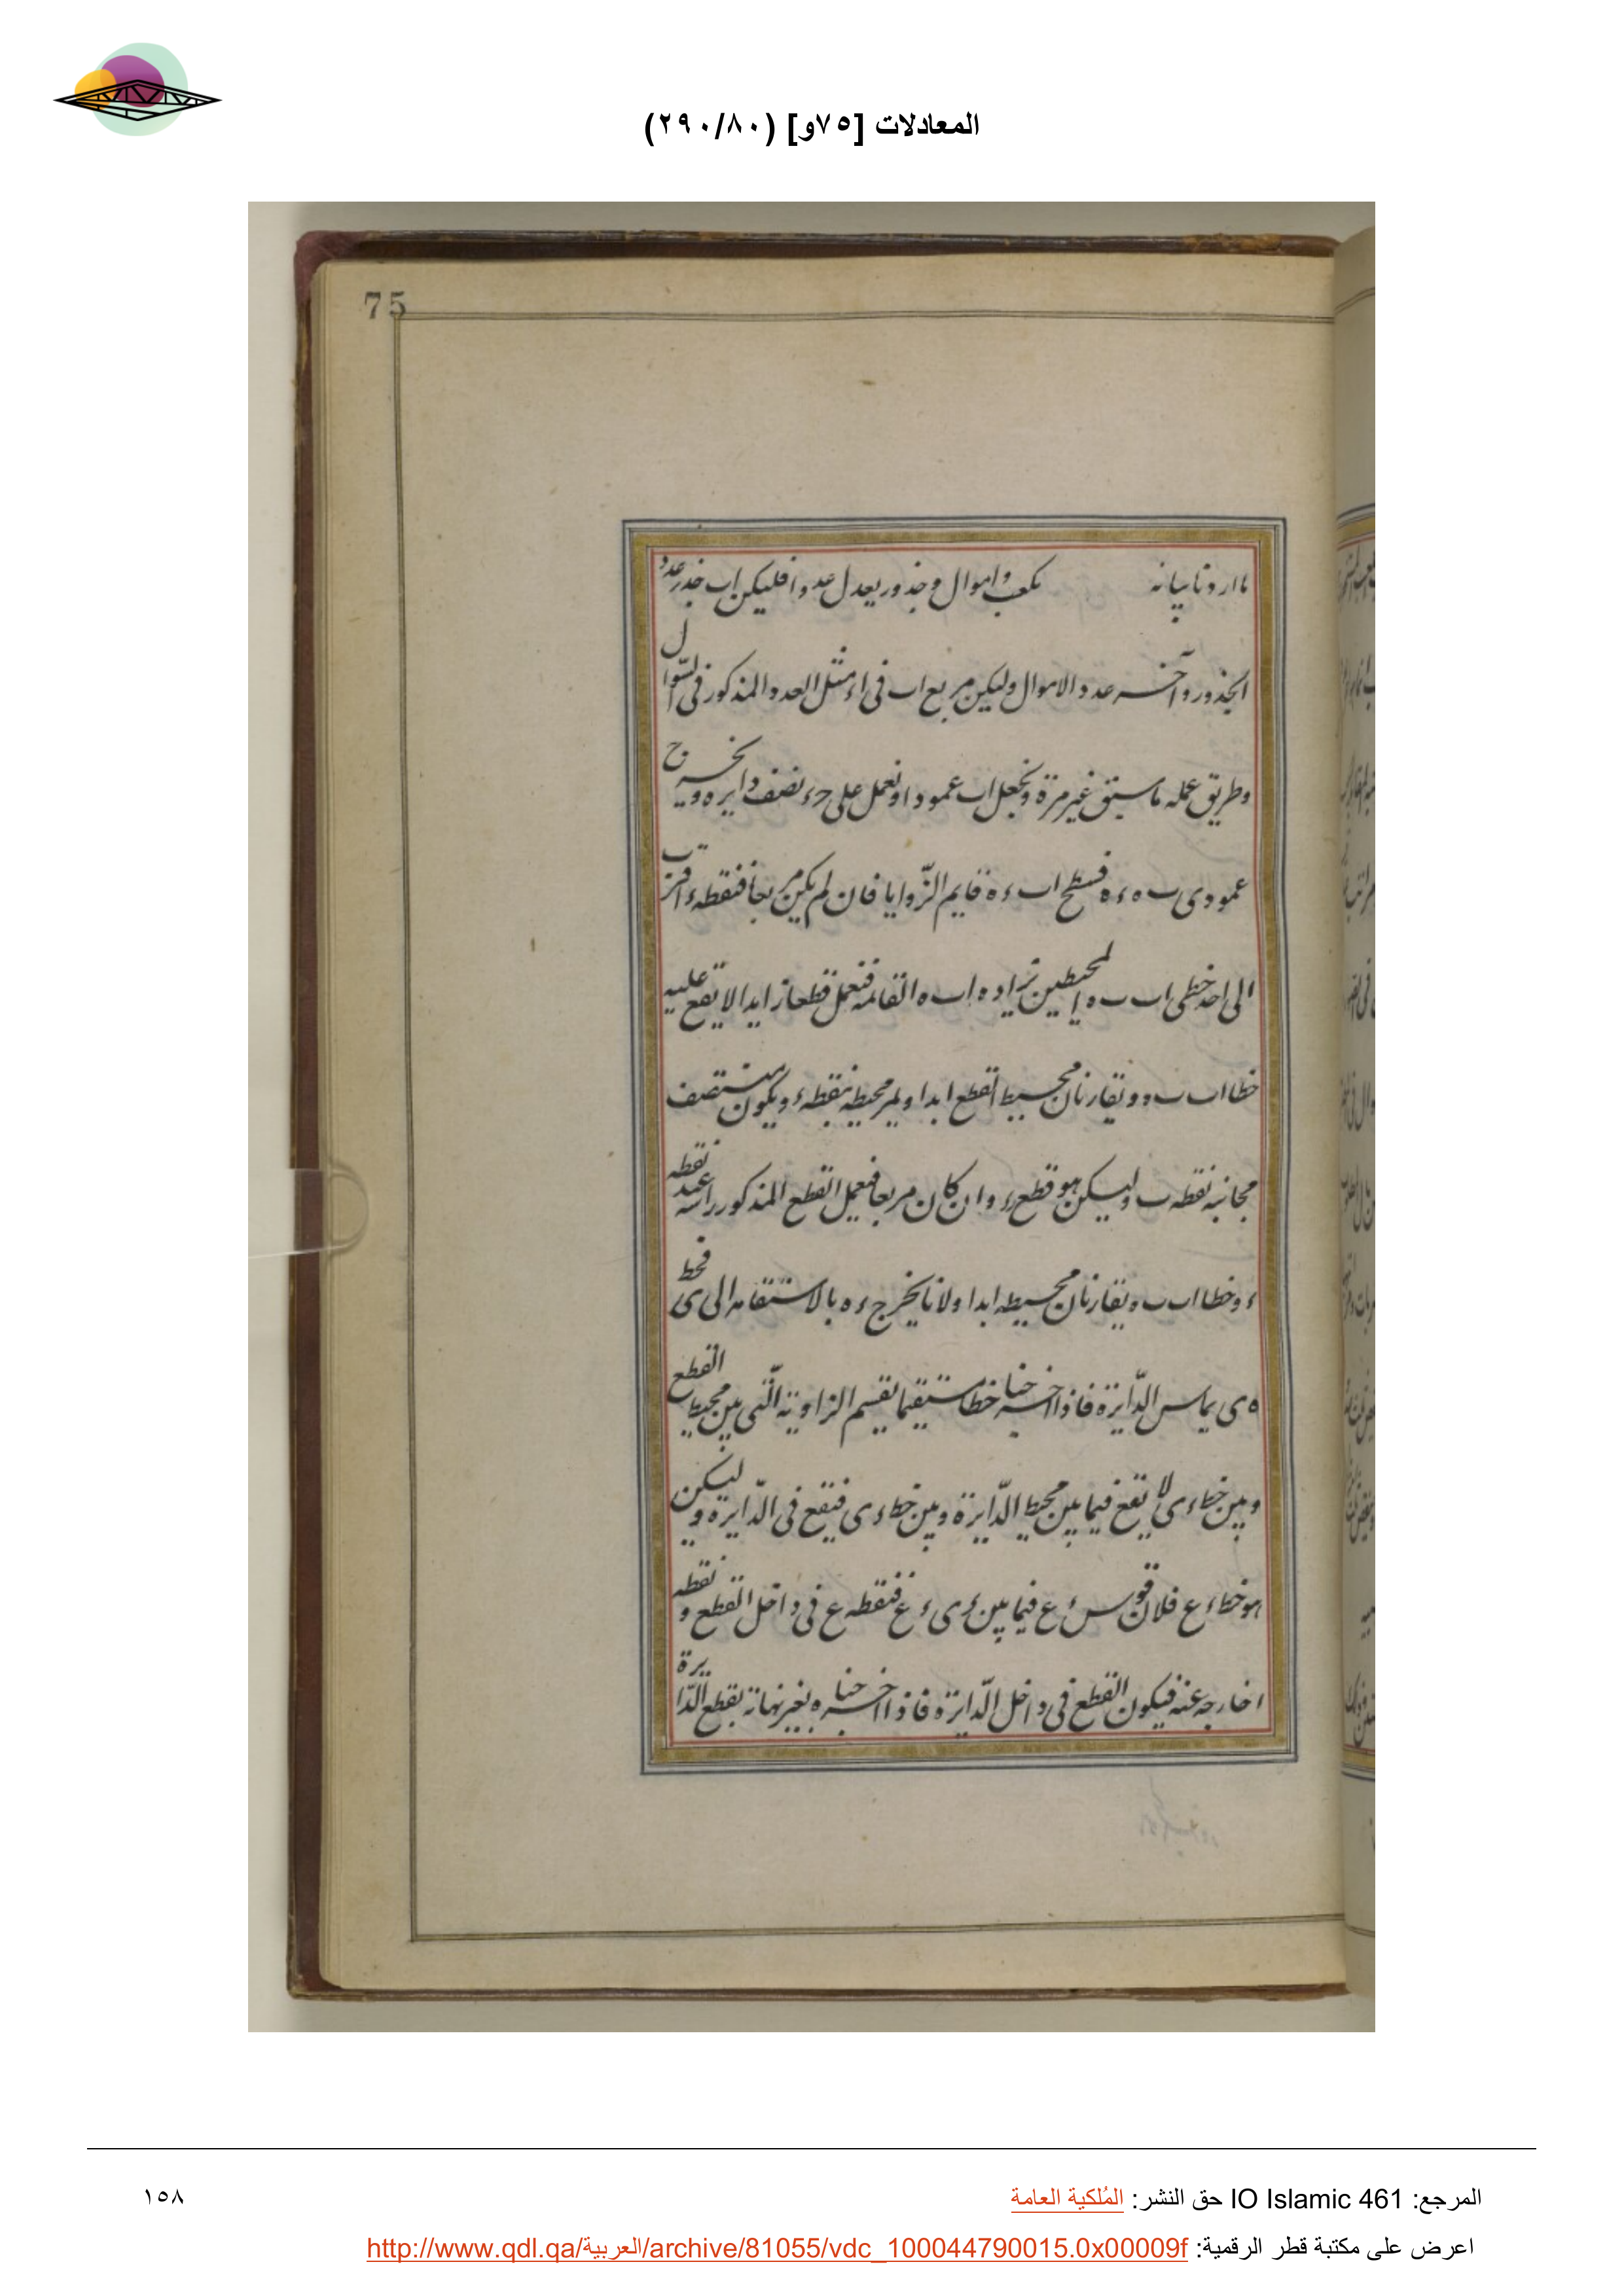 المعادلات [٧٥و] (٢٩٠/٨٠)
75
ما اردنا بيانه مكعب واموال وجذور يعدل عددا فليكن اب جذر عدد
الجذور وآخر عدد الاموال وليكن مربع اب في اء مثل العدد المذكور في السوال
وطريق عمله ما سبق غير مرة ونجعل اب عمودا ونعمل على حء نصف دايره ويخرج
عمودى ب ه ء ه فسطح اب ء ه قايم الزّوايا فان لم يكن مربعا فنقطه ء اقرب
الى احد خطى اب ب ه المحيطين بزاويه اب ه القائمه فنعمل قطعا زايدا لا يقع عليه
خطا اب ب ه ويقاربان محيط القطع ابدا وليمر محيطه بنقطه ء ويكون منتصف
مجانبه نقطه ب وليكن هو قطع وان كان مربعا فنعمل القطع المذكور راسه عند نقطه
ء وخطا اب ب ه يقاربان محيطه ابدا ولانا يخرج ء ه بالاستقامه الى ى فخط
ه ى يماس الدّايرة فاذا اخرجنا خطا مستقيما يقسم الزاوية الّتى بين محيط القطع
وبين خط ء ى لا يقع فيما بين محيط الدّايرة وبين خط ء ى فيقع في الدّايرة وليكن
هو خط ء ع فلان قوس ء ع فيما بين ء ى ء ع فنقطه ع في داخل القطع ونقطه
ا خارجه عنه فيكون القطع في داخل الدّايرة فاذا اخرجناه بغير نهاية يقطع الدّايرة
المرجع: IO Islamic 461 حق النشر: المُلكية العامة
١٥٨
اعرض على مكتبة قطر الرقمية: http://www.qdl.qa/العربية/archive/81055/vdc_100044790015.0x00009f